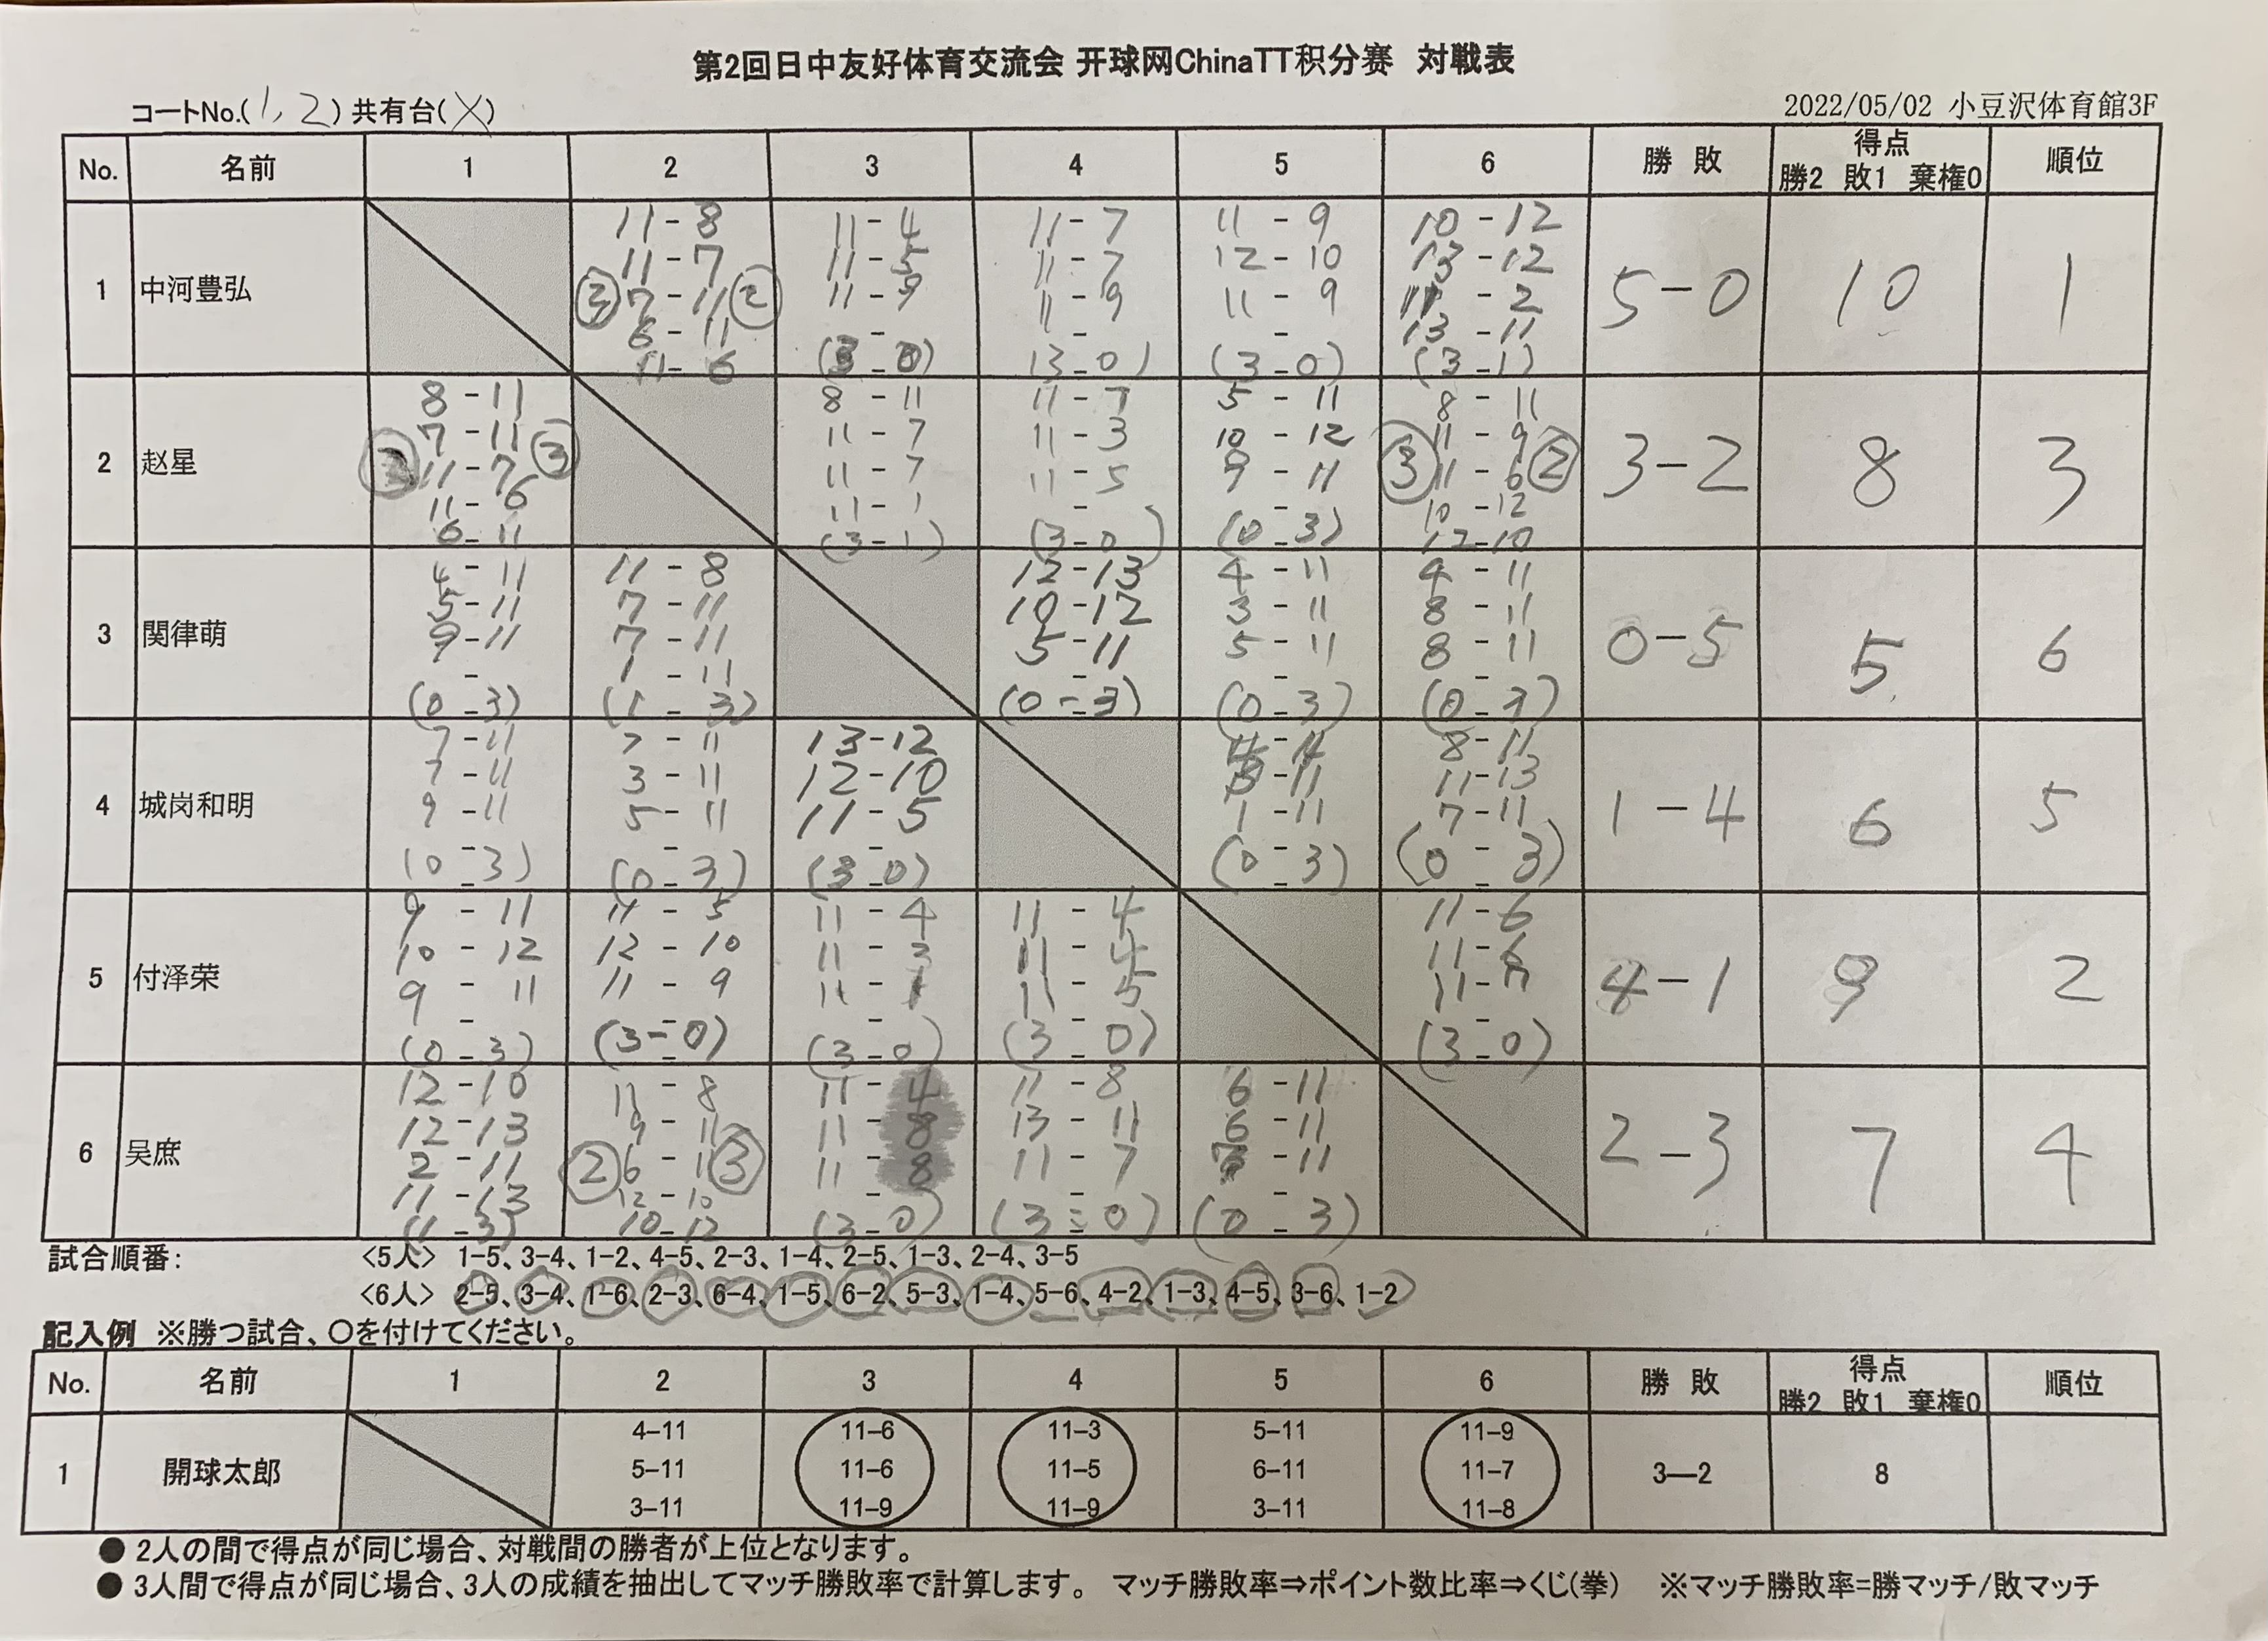 第2回日中友好体育交流会 开球网ChinaTT积分赛 対戦表
コートNo.(1,2) 共有台(X)
2022/05/02 小豆沢体育館3F
No. 名前 1 2 3 4 5 6 勝 敗 得点 勝2 敗1 棄権0 順位
1 中河豊弘
11-8 11-7 7-11 6-11 11-6 ③ ②
11-4 11-5 11-9 (3-0)
11-7 11-7 11-9 (3-0)
11-9 12-10 11-9 (3-0)
10-12 13-12 11-2 13-11 (3-1)
5-0 10 1
2 赵星
8-11 7-11 11-7 11-6 6-11 ③
8-11 11-7 11-7 11-1 (3-1)
11-7 11-3 11-5 (3-0)
5-11 10-12 9-11 (0-3)
8-11 11-9 11-6 10-12 12-10 ③ ②
3-2 8 3
3 関律萌
4-11 5-11 9-11 (0-3)
11-8 7-11 7-11 1-11 (1-3)
12-13 10-12 5-11 (0-3)
4-11 3-11 5-11 (0-3)
4-11 8-11 8-11 (0-3)
0-5 5 6
4 城岗和明
7-11 7-11 9-11 (0-3)
7-11 3-11 5-11 (0-3)
13-12 12-10 11-5 (3-0)
-11 1-11 (0-3)
8-11 11-13 7-11 (0-3)
1-4 6 5
5 付泽荣
9-11 10-12 9-11 (0-3)
11-5 12-10 11-9 (3-0)
11-4 11-3 11- (3-0)
11-4 11-4 11-5 (3-0)
11-6 11-6 11-7 (3-0)
4-1 9 2
6 吴庶
12-10 12-13 2-11 11-13 (1-3)
11-8 9-11 6-11 12-10 10-12 ② ③
11-4 11-8 11-8 (3-0)
11-8 13-11 11-7 (3-0)
6-11 6-11 7-11 (0-3)
2-3 7 4
試合順番: <5人> 1-5、3-4、1-2、4-5、2-3、1-4、2-5、1-3、2-4、3-5
<6人> 2-5、3-4、1-6、2-3、6-4、1-5、6-2、5-3、1-4、5-6、4-2、1-3、4-5、3-6、1-2
記入例 ※勝つ試合、〇を付けてください。
No. 名前 1 2 3 4 5 6 勝 敗 得点 勝2 敗1 棄権0 順位
4-11 11-6 11-3 5-11 11-9
1 開球太郎 5-11 11-6 11-5 6-11 11-7 3—2 8
3-11 11-9 11-9 3-11 11-8
● 2人の間で得点が同じ場合、対戦間の勝者が上位となります。
● 3人間で得点が同じ場合、3人の成績を抽出してマッチ勝敗率で計算します。 マッチ勝敗率⇒ポイント数比率⇒くじ(拳) ※マッチ勝敗率=勝マッチ/敗マッチ